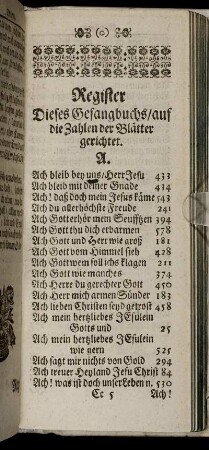 (o)
Register
Dieses Gesangbuchs/auf
die Zahlen der Blätter
gerichtet.
A.
Ach bleib bey uns/Herr Jesu 433
Ach bleib mit deiner Gnade 434
Ach! daß doch mein Jesus käme 543
Ach du allerhöchste Freude 241
Ach Gott erhör mein Seufftzen 394
Ach Gott thu dich erbarmen 578
Ach Gott und Herr wie groß 181
Ach Gott vom Himmel sieh 428
Ach Gott wem soll ichs klagen 211
Ach Gott wie manches 374
Ach Herre du gerechter Gott 450
Ach Herr mich armen Sünder 183
Ach lieben Christen seyd getrost 458
Ach mein hertzliebes JEsulein
Gotts und 25
Ach mein hertzliebes JEsulein
wie gern 525
Ach sagt mir nichts von Gold 294
Ach treuer Heyland Jesu Christ 84
Ach! was ist doch unser Leben n. 530
Cc 5 Ach!